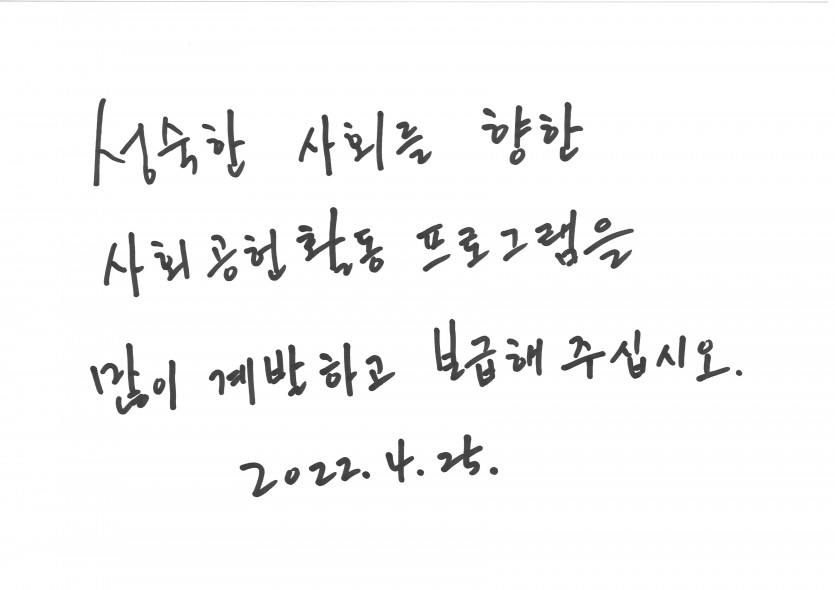 성숙한 사회를 향한
사회공헌활동 프로그램을
많이 계발하고 보급해 주십시오.
2022. 4. 25.